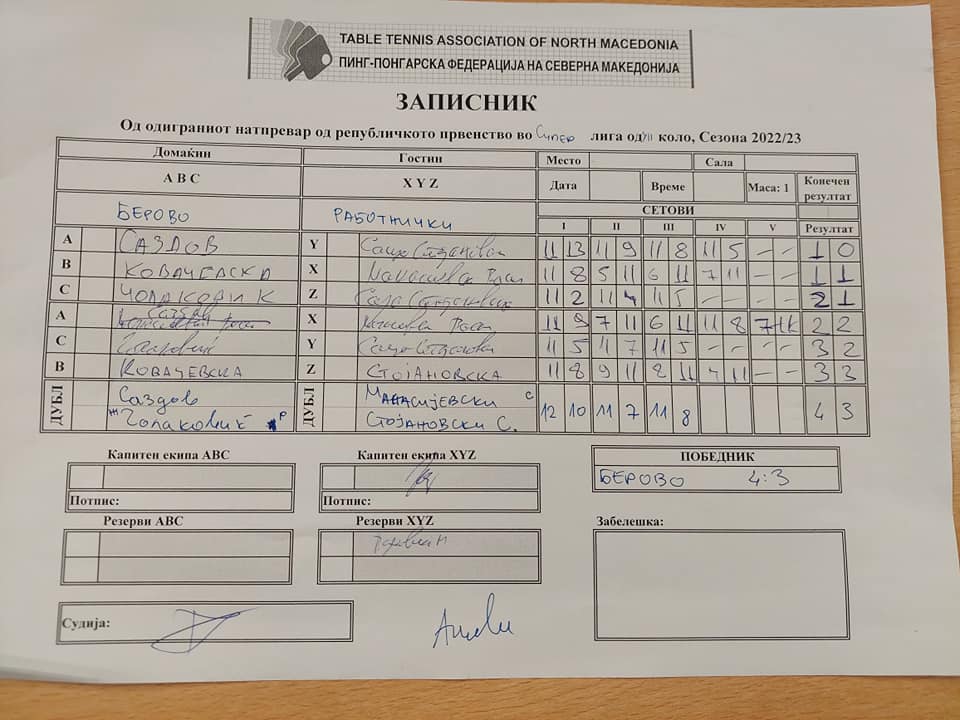 TABLE TENNIS ASSOCIATION OF NORTH MACEDONIA
ПИНГ-ПОНГАРСКА ФЕДЕРАЦИЈА НА СЕВЕРНА МАКЕДОНИЈА
ЗАПИСНИК
Од одиграниот натпревар од републичкото првенство во Супер лига од VII коло, Сезона 2022/23
Домаќин Гостин Место Сала
A B C X Y Z Дата Време Маса: 1 Конечен резултат
БЕРОВО РАБОТНИЧКИ СЕТОВИ
I II III IV V Резултат
A САЗДОВ Y 11 13 11 9 11 8 11 5 – – 1 0
B КОВАЧЕВСКА X 11 8 5 11 6 11 7 11 – – 1 1
C Z 11 2 11 4 11 5 – – – – 2 1
A X 11 9 7 11 6 11 11 8 7 11 2 2
C Y 11 5 11 7 11 5 – – – – 3 2
B КОВАЧЕВСКА Z СТОЈАНОВСКА 11 8 9 11 8 11 4 11 – – 3 3
ДУБЛ Саздов ДУБЛ МАНАСИЈЕВСКИ С 12 10 11 7 11 8 4 3
Чолаковиќ СТОЈАНОВСКИ С.
Капитен екипа ABC Капитен екипа XYZ ПОБЕДНИК
БЕРОВО 4:3
Потпис: Потпис:
Резерви ABC Резерви XYZ Забелешка:
Судија: